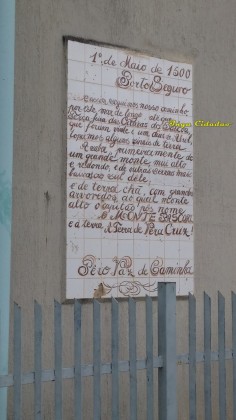 1º de Maio de 1500
Porto Seguro
Fuço Cidades
e assim seguimos nosso caminho
por este mar de longo até que
Terça feira das Oitavas de Páscoa
que foram vinte e um dias d'Abril
topamos alguns sinais de terra...
A saber, primeiramente de
um grande monte, mui alto
e redondo, e de outras serras mais
baixas ao sul dele,
e de terra chã, com grandes
arvoredos, ao qual monte
alto o capitão pôs nome
MONTE PASCOAL
e à terra, a Terra de Vera Cruz!
Pero Vaz de Caminha